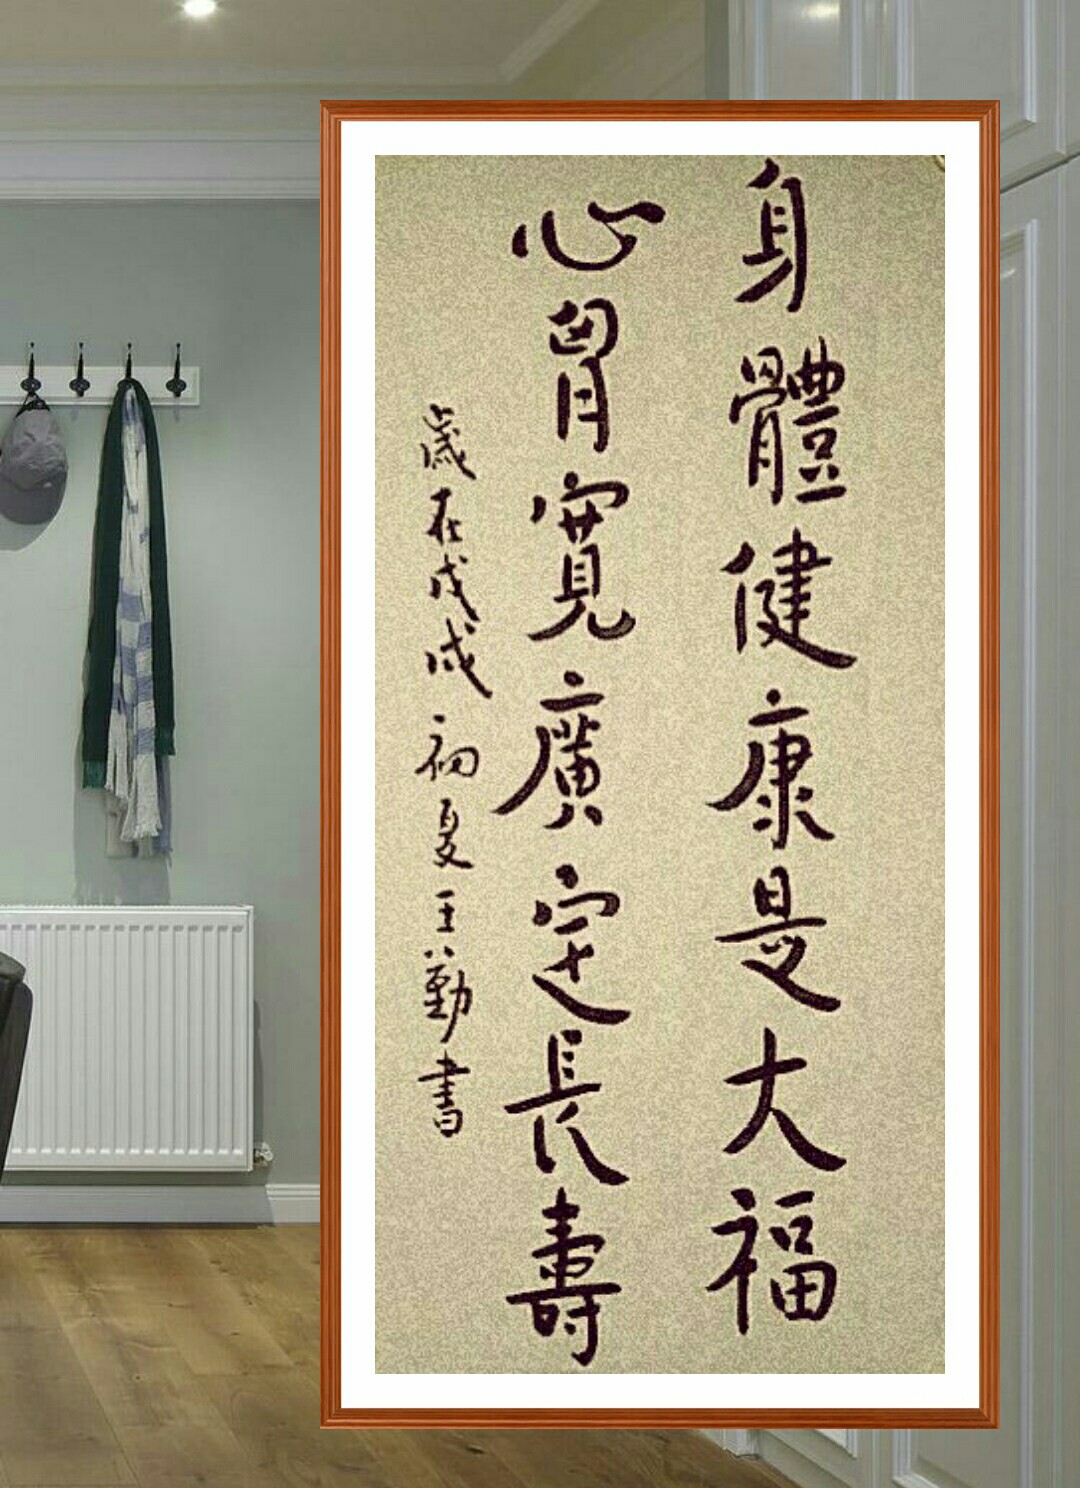 身體健康是大福
心胷寬廣定長壽
歲在戊戌初夏王勤書